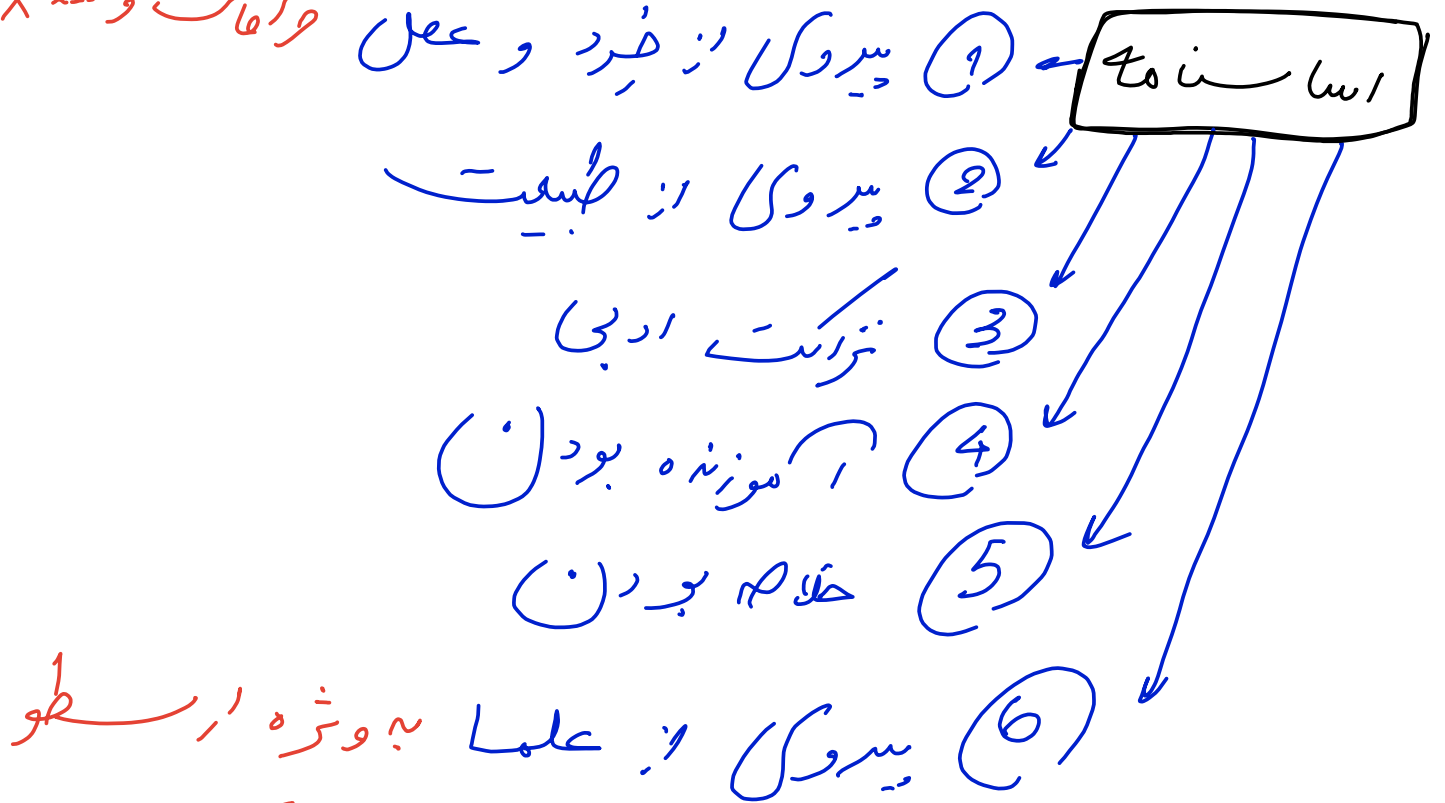 اساسنامه
① پیروی از خِرد و عقل
② پیروی از طبیعت
③ نزاکت ادبی
④ آموزنده بودن
⑤ خلاصه بودن
⑥ پیروی از علما به ویژه ارسطو